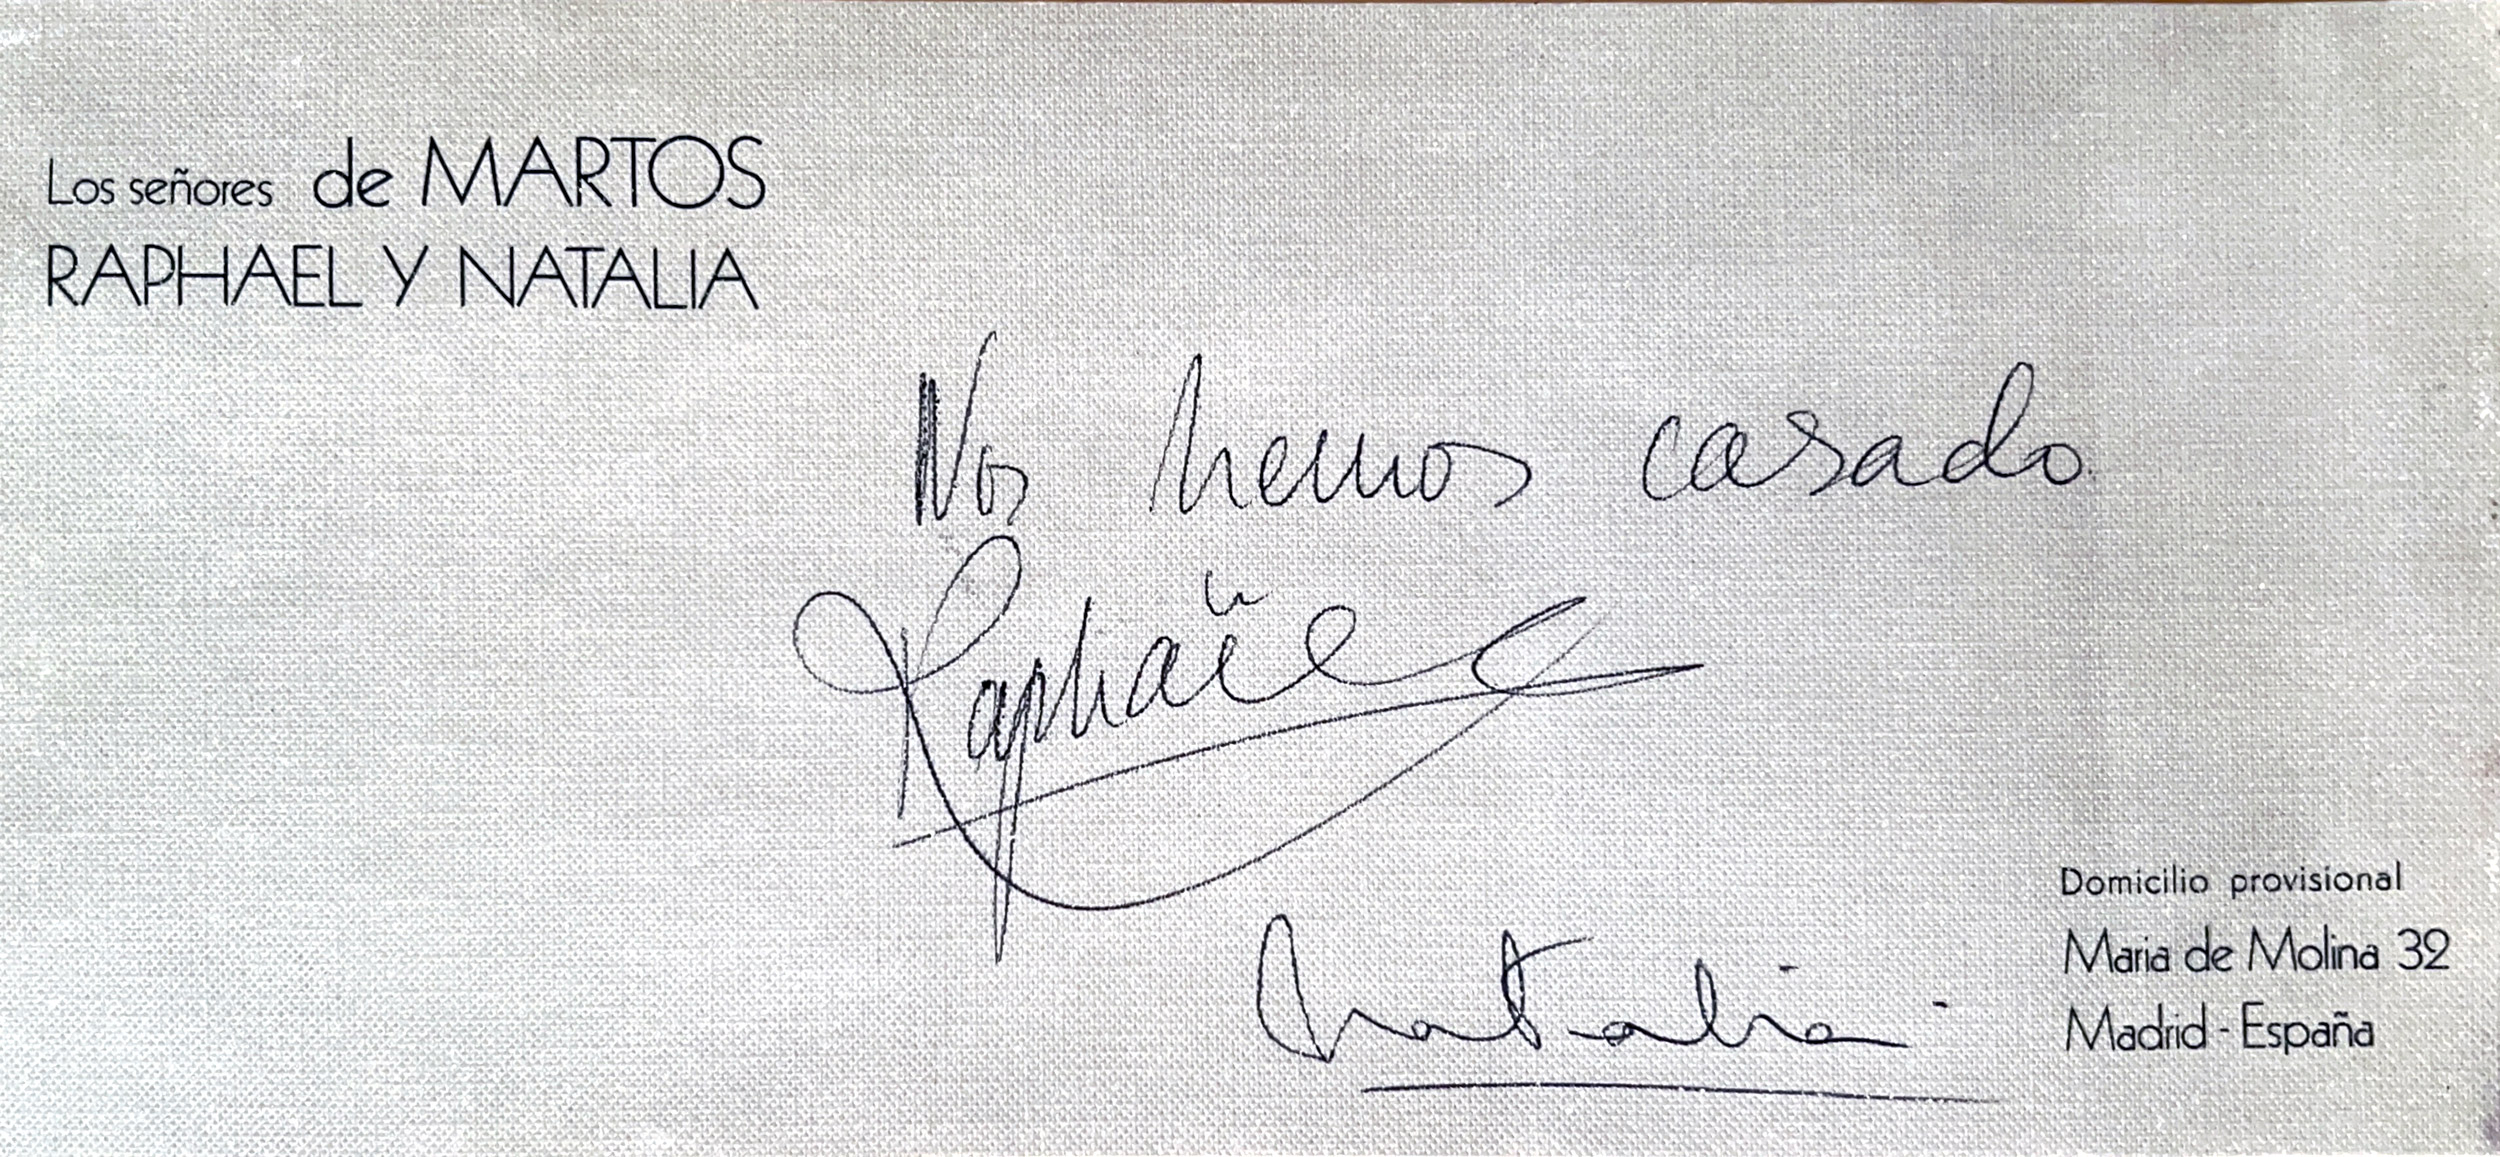 Los señores de MARTOS
RAPHAEL Y NATALIA
Nos hemos casado
Raphael
Natalia
Domicilio provisional
Maria de Molina 32
Madrid - España